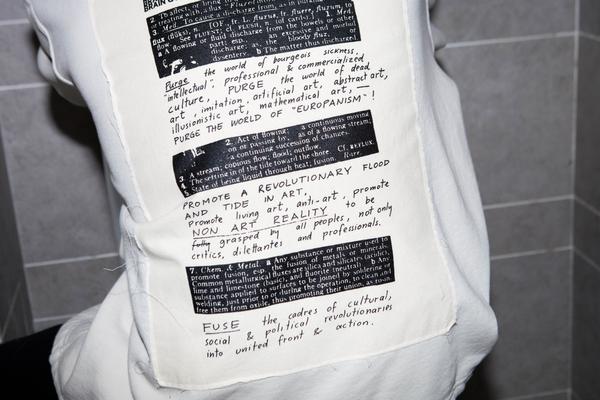 BRAIN
2. To affect, or bring to
or treating with, a flux. "Fluxed into
3. Med. To cause a discharge from, as in purging.
flux (flŭks), n. [OF., fr. L. fluxus, fr. fluere, fluxum, to
flow. See FLUENT; cf. FLUSH, n. (of cards).] 1. Med.
a A flowing or fluid discharge from the bowels or other
part; esp., an excessive and morbid
discharge: as, the bloody flux, or
dysentery. b The matter thus discharged
Purge the world of bourgeois sickness,
"intellectual", professional & commercialized
culture, PURGE the world of dead
art, imitation, artificial art, abstract art,
illusionistic art, mathematical art, —
PURGE THE WORLD OF "EUROPANISM"!
2. Act of flowing: a continuous moving
on or passing by, as of a flowing stream;
a continuing succession of changes.
3. A stream; copious flow; flood; outflow.
4. The setting in of the tide toward the shore. Cf. REFLUX.
5. State of being liquid through heat; fusion. Rare.
PROMOTE A REVOLUTIONARY FLOOD
AND TIDE IN ART,
Promote living art, anti-art, promote
NON ART REALITY to be
fully grasped by all peoples, not only
critics, dilettantes and professionals.
7. Chem. & Metal. a Any substance or mixture used to
promote fusion, esp. the fusion of metals or minerals.
Common metallurgical fluxes are silica and silicates (acidic),
lime and limestone (basic), and fluorite (neutral). b Any
substance applied to surfaces to be joined by soldering or
welding, just prior to or during the operation, to clean and
free them from oxide, thus promoting their union, as rosin.
FUSE the cadres of cultural,
social & political revolutionaries
into united front & action.